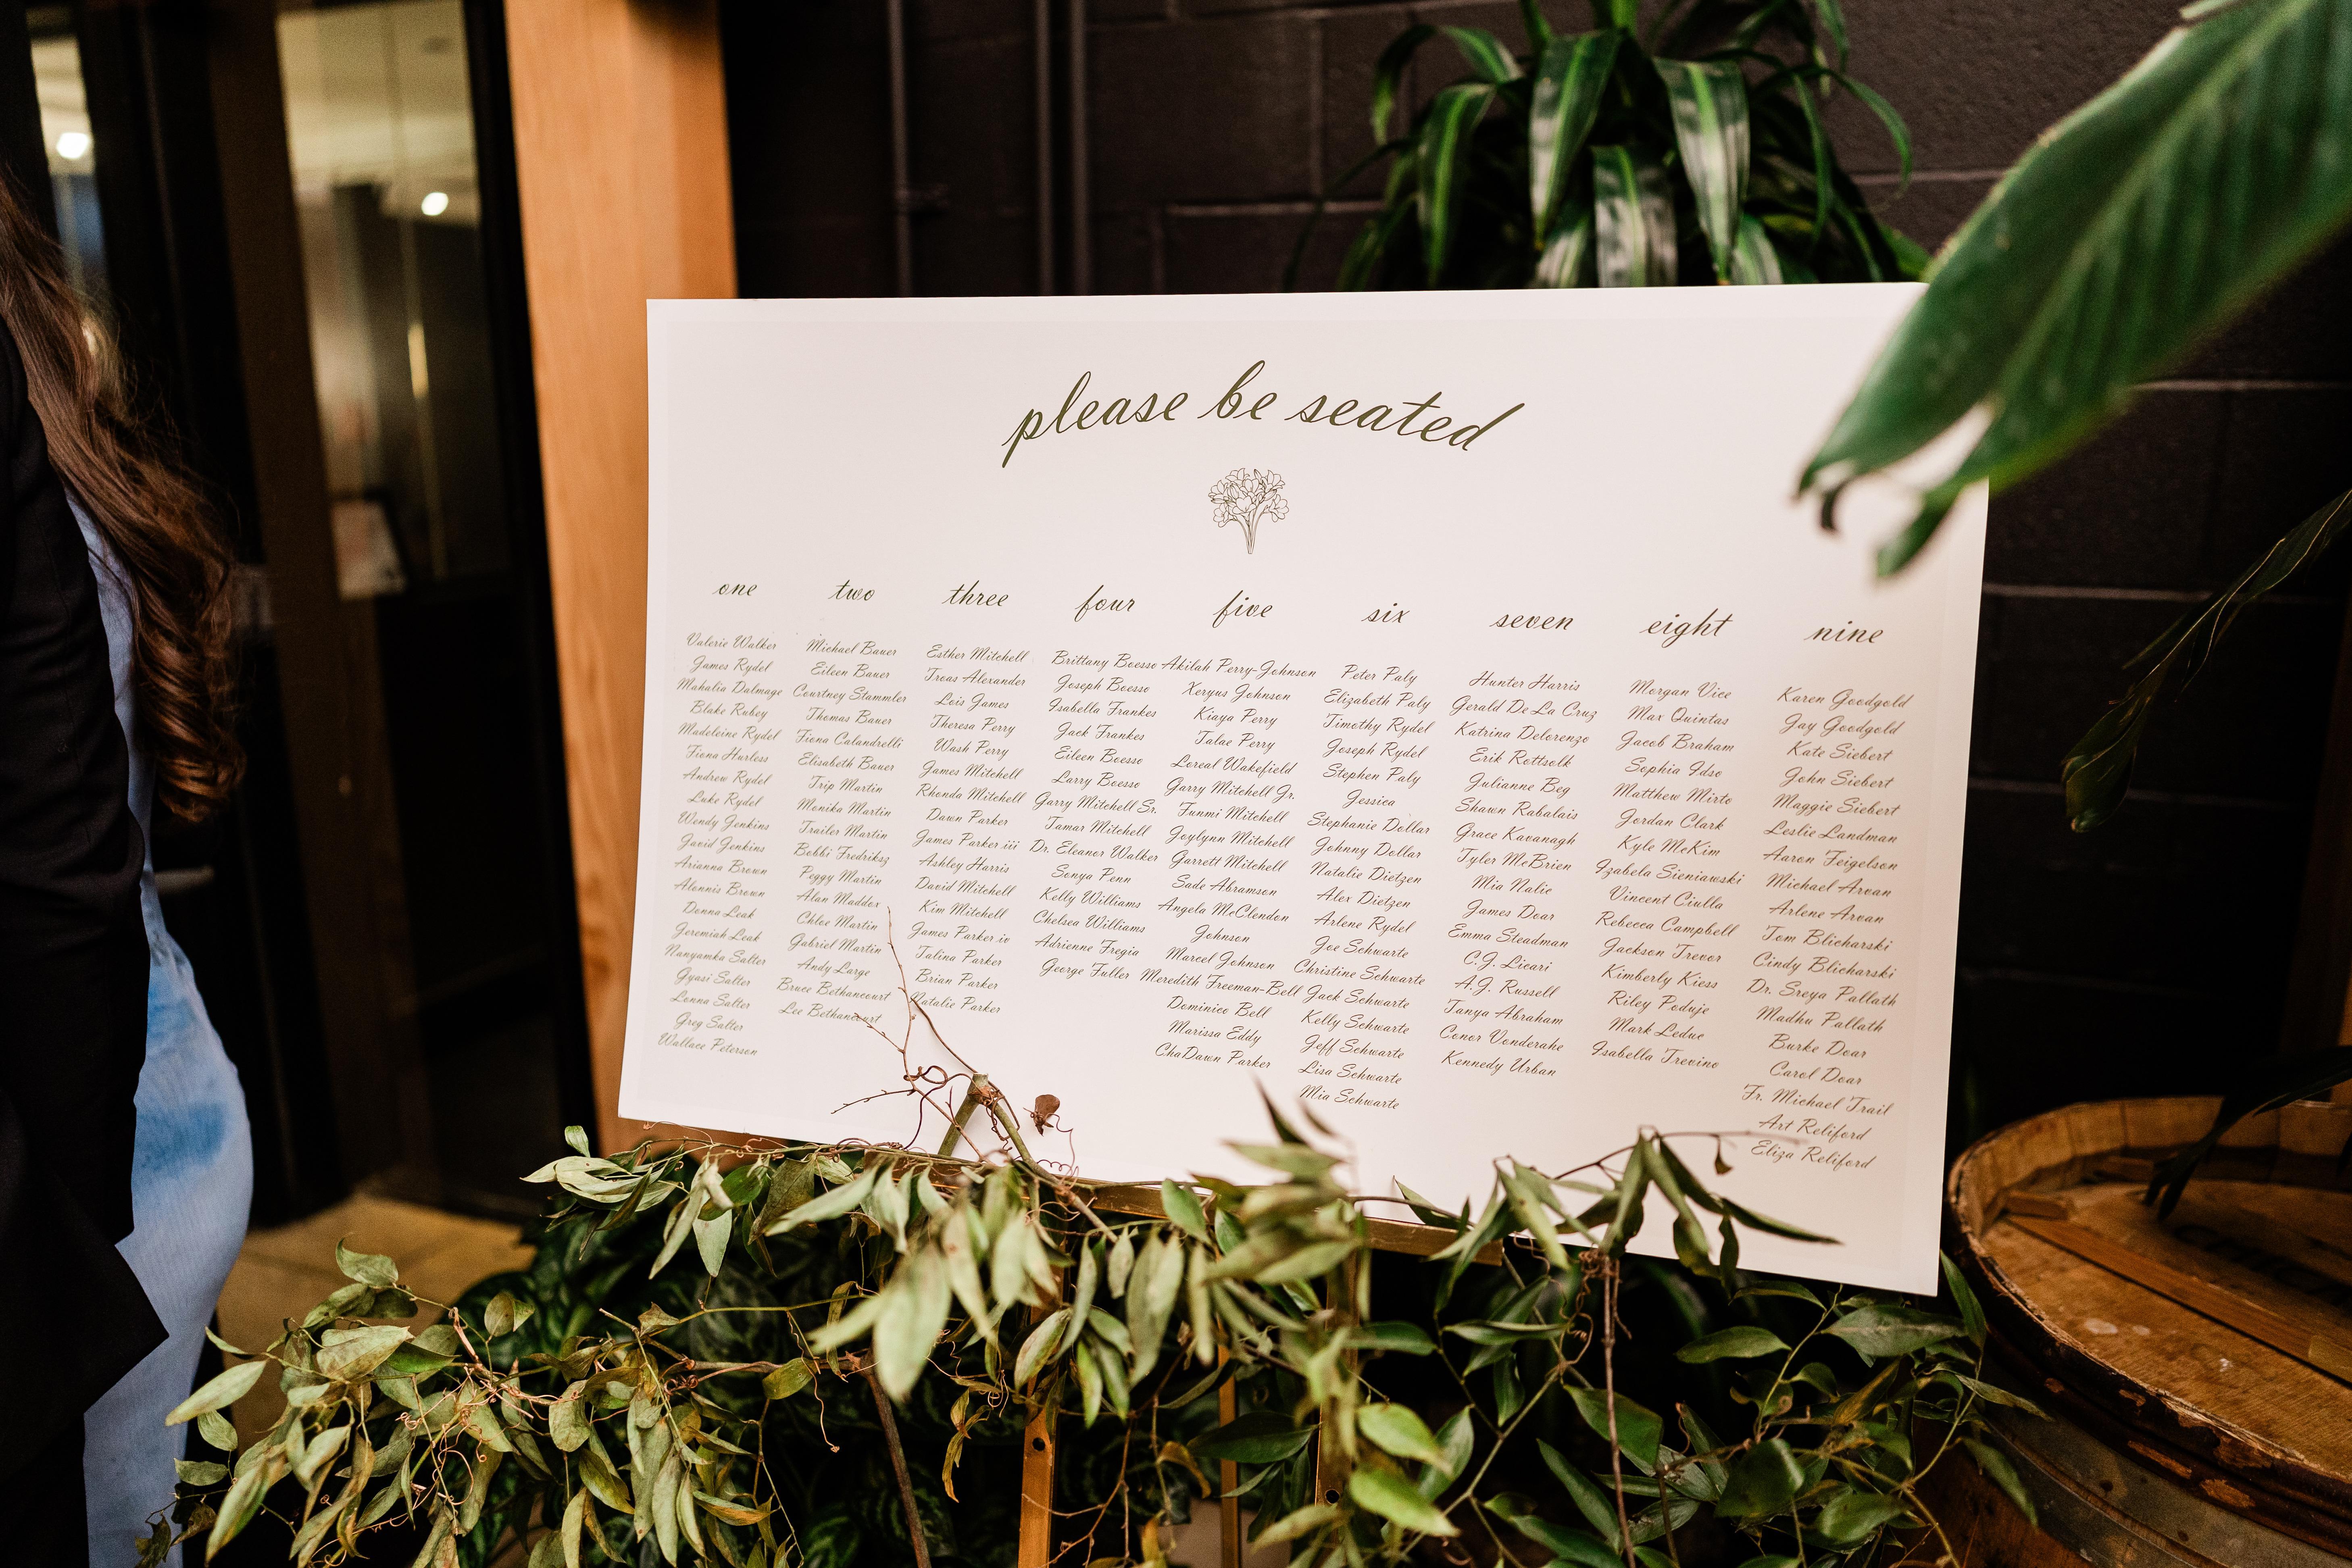 please be seated
one
Valerie Walker
James Rydel
Mahalia Dalmage
Blake Rubey
Madeleine Rydel
Fiona Hurless
Andrew Rydel
Luke Rydel
Wendy Jenkins
Javid Jenkins
Arianna Brown
Alonnis Brown
Donna Leak
Jeremiah Leak
Nanyamka Salter
Gyasi Salter
Lonna Salter
Greg Salter
Wallace Peterson
two
Michael Bauer
Eileen Bauer
Courtney Stammler
Thomas Bauer
Fiona Calandrelli
Elisabeth Bauer
Trip Martin
Monika Martin
Trailer Martin
Bobbi Fredriksz
Peggy Martin
Alan Maddox
Chloe Martin
Gabriel Martin
Andy Large
Bruce Bethancourt
Lee Bethancourt
three
Esther Mitchell
Troas Alexander
Lois James
Theresa Perry
Wash Perry
James Mitchell
Rhonda Mitchell
Dawn Parker
James Parker iii
Ashley Harris
David Mitchell
Kim Mitchell
James Parker iv
Talina Parker
Brian Parker
Natalie Parker
four
Brittany Boesso
Joseph Boesso
Isabella Frankes
Jack Frankes
Eileen Boesso
Larry Boesso
Garry Mitchell Sr.
Tamar Mitchell
Dr. Eleanor Walker
Sonya Penn
Kelly Williams
Chelsea Williams
Adrienne Fregia
George Fuller
five
Akilah Perry-Johnson
Xeryus Johnson
Kiaya Perry
Talae Perry
Loreal Wakefield
Garry Mitchell Jr.
Funmi Mitchell
Joylynn Mitchell
Garrett Mitchell
Sade Abramson
Angela McClendon
Johnson
Marcel Johnson
Meredith Freeman-Bell
Dominico Bell
Marissa Eddy
ChaDawn Parker
six
Peter Paly
Elizabeth Paly
Timothy Rydel
Joseph Rydel
Stephen Paly
Jessica
Stephanie Dollar
Johnny Dollar
Natalie Dietzen
Alex Dietzen
Arlene Rydel
Joe Schwarte
Christine Schwarte
Jack Schwarte
Kelly Schwarte
Jeff Schwarte
Lisa Schwarte
Mia Schwarte
seven
Hunter Harris
Gerald De La Cruz
Katrina Delorenzo
Erik Rottsolk
Julianne Beg
Shawn Rabalais
Grace Kavanagh
Tyler McBrien
Mia Nalie
James Doar
Emma Steadman
C.J. Licari
A.J. Russell
Tanya Abraham
Conor Vonderahe
Kennedy Urban
eight
Morgan Vice
Max Quintas
Jacob Braham
Sophia Idso
Matthew Mirto
Jordan Clark
Kyle McKim
Izabela Sieniawski
Vincent Ciulla
Rebecca Campbell
Jackson Trevor
Kimberly Kiess
Riley Poduje
Mark Leduc
Isabella Trevino
nine
Karen Goodgold
Jay Goodgold
Kate Siebert
John Siebert
Maggie Siebert
Leslie Landman
Aaron Feigelson
Michael Arvan
Arlene Arvan
Tom Blicharski
Cindy Blicharski
Dr. Sreya Pallath
Madhu Pallath
Burke Doar
Carol Doar
Fr. Michael Trail
Art Reliford
Eliza Reliford